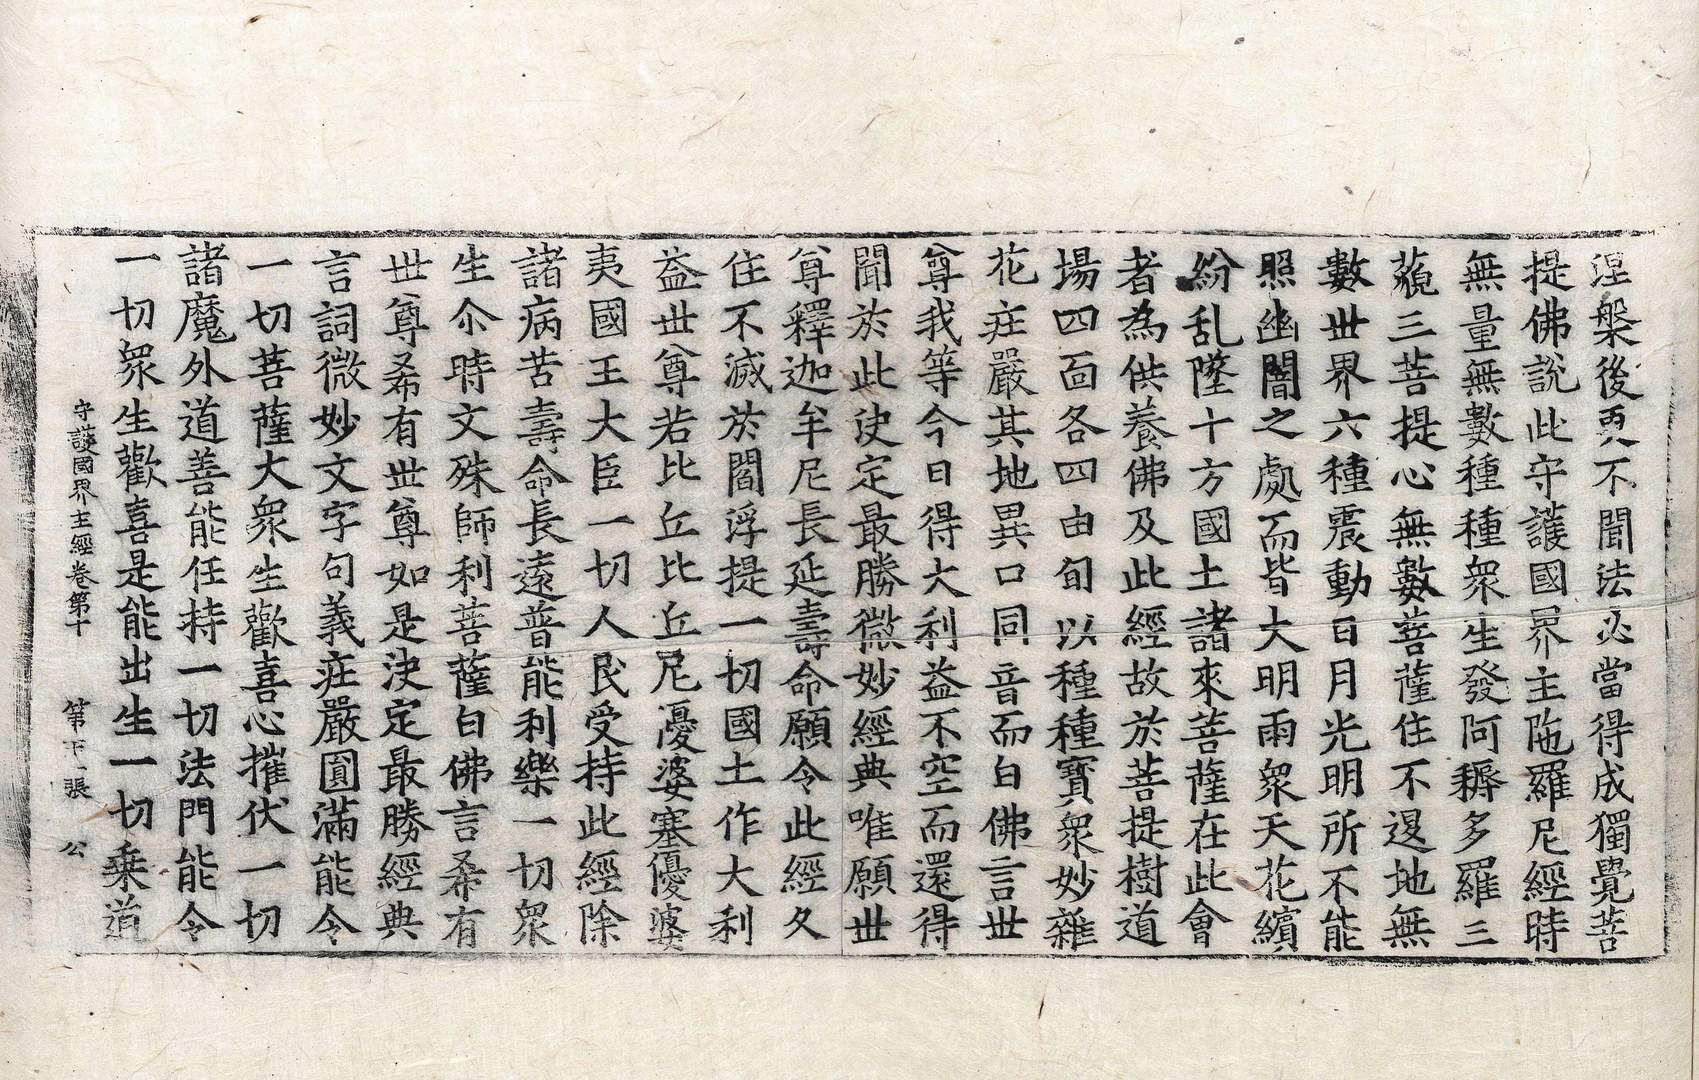 涅槃後更不聞法必當得成獨覺菩
提佛說此守護國界主陁羅尼經時
無量無數種種衆生發阿耨多羅三
藐三菩提心無數菩薩住不退地無
數世界六種震動日月光明所不能
照幽闇之處而皆大明雨衆天花繽
紛乱墜十方國土諸來菩薩在此會
者為供養佛及此經故於菩提樹道
場四面各四由旬以種種寶衆妙雜
花莊嚴其地異口同音而白佛言世
尊我等今日得大利益不空而還得
聞於此決定最勝微妙經典唯願世
尊釋迦牟尼長延壽命願令此經久
住不滅於閻浮提一切國土作大利
益世尊若比丘比丘尼優婆塞優婆
夷國王大臣一切人民受持此經除
諸病苦壽命長遠普能利樂一切衆
生尒時文殊師利菩薩白佛言希有
世尊希有世尊如是決定最勝經典
言詞微妙文字句義莊嚴圓滿能令
一切菩薩大衆生歡喜心摧伏一切
諸魔外道善能任持一切法門能令
一切衆生歡喜是能出生一切乗道
守護國界主經卷第十 第 張 公